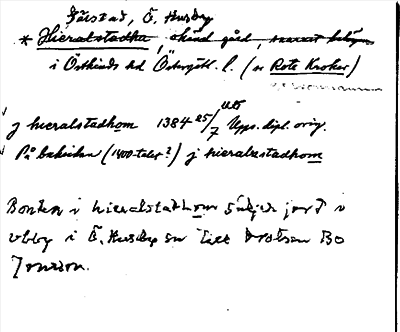 Järstad, Ö. Husby
* Hieralstadha, okänd gård, snarast belägen
i Östkinds hd Östergötl. l. (se Rote Kroker)
j hieralstadhom 1384 25/7 Utö Upps. dipl. orig.
På baksidan (1400-talet?) j hieralzstadhom
Bonden i hieralstadhom säljer jord i
i Ö. Husby sn till drotsen Bo
Jonsson.